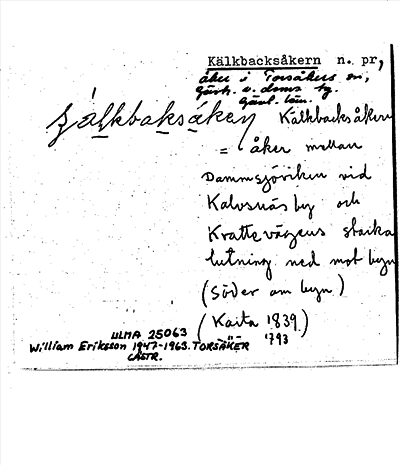 Kälkbacksåkern n. pr,
åker i Torsåkers sn,
Gästr. ö. doms hg.
Gävl. län.
Kälkbacksåkern
= åker mellan
Dammsjöviken vid
Kalvsnäs by och
Krattevägens starka
lutning ned mot byn
(Söder om byn)
(Karta 1839)
1793
ULMA 25063
William Eriksson 1947-1963. TORSÅKER
GÄSTR.